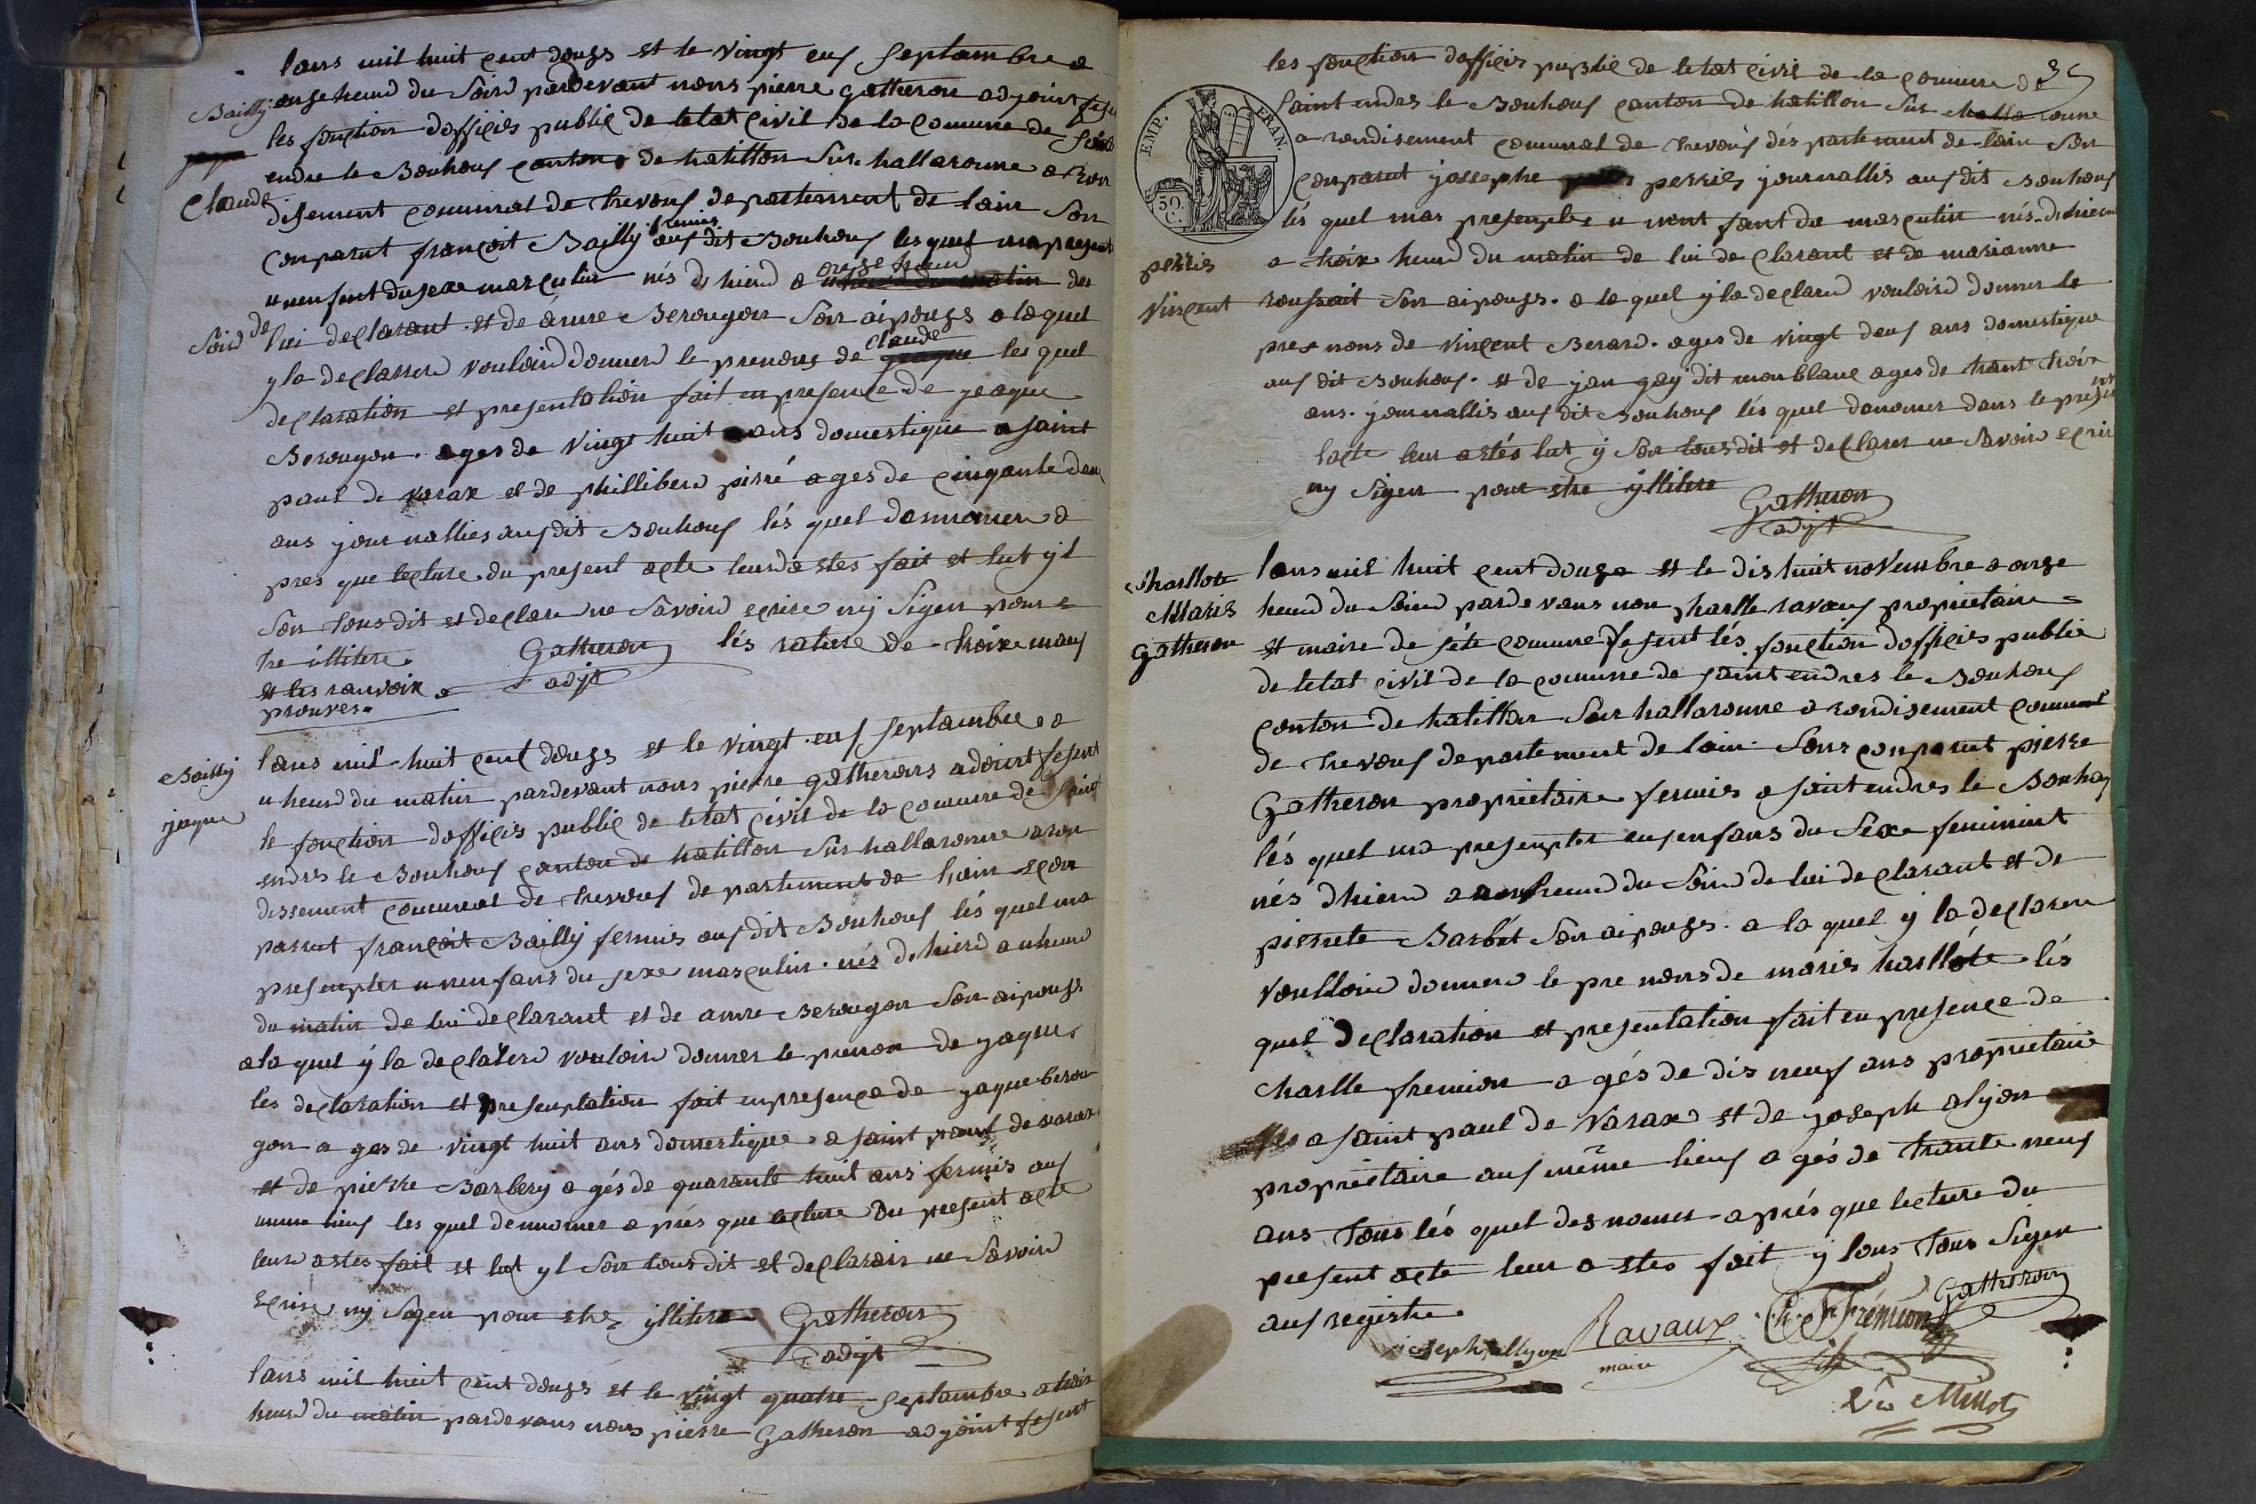 lans mil huit cent douze et le vingt euf septambre a
Bailly
onse heurd du Soird pardevant nous pierre gatheron adjoint
les fonction dofficies public de letat Civil de la Comune de
endre le Bouhouf Canton de hatillon Sur hallaronne a
Claude
disement Communal de trevouf departement de lain Son
Conparut françoit Bailly fermis auf dit Bouhouf les quel ma
u nenfent du sexe masculin nés dhierd a onze heurd du
Soird de
lui declarant et de anne Berougon Son aipouze a la quel
y la declarerd vouloird donnerd le prenons de claude les quel
declaration et presentation fait en presence de jeaque
Berougon ages de vingt huit ans domestique a saint
paul de varax et de philliberd pirré ages de cinqante
ans journallies auf dit Bouhouf lés quel dennomer a
pres que lecture du present acte leurd a etes fait et lut yl
Son tous dit et declare ne Savoird ecrire ny Sigen pour e
tre illitere Gatheron lés rature de troixe mauf
adjt
et les ranvoix a
prouver.
Bailly
jaque
lans mil huit cent douze et le vingt euf septambre a
u heurd du matin pardevant nous pierre gatheron adoint fesent
le fonction dofficis public de letat Civil de la Commune de Saint
endres le Bouhouf Canton de hatillon Sur hallaronne aron
dissement Communal de trevouf de partement de Lain Son con
parut françoit Bailly fermis auf dit Bouhouf lés quel ma
presempter u nenfans du sexe masculin nés dhierd a u heurd
du matin de lui declarant et de anne Berougon Son aipouze
a la quel y la declarerd vouloird donner le prenon de jaque
lés declaration et presemptation fait en presence de jaque berou
gon a ges de vingt huit ans domestique a saint paul de varax
et de pierre Barbery a gés de quarante huit ans fermis auf
meme lieuf les quel dennomer a prés que lecture du present acte
leurd a etes fait et lut yl Son tous dit et declarair ne Savoird
Ecrire ny Sigen pour etre yllitere Gatheron
adjt
lans mil huit cent douze et le vingt quatre septambre a troix
heurd du matin pardevans nous pierre Gatheron adjoint fesent
les fonction dofficis public de letat Civil de la Comune de
Saint endres le Bouhouf Canton de hatillon Sur ronne
EMP. FRAN.
50. C.
a rondisement Comunal de trevouf dés partement de lain Son
Conparut jossephe perrier journallis auf dit Bouhouf
lés quel mas presempter u nenf fant du masculin nés dhierd
perris
Vincent
a troix heurd du matin de lui declarant et de marianne
Son aipouze. a la quel y la declarerd vouloird donner le
pres nons de vincent Berard. ages de vingt deuf ans domestique
auf dit Bouhouf. et de jan gay dit monblanc ages de trant troix
ans. journallis auf dit Bouhouf lés quel denomer dans le present
lacte leur a etés lut y Son tous dit et declarer ne Savoir ecrir
ny Sigen pour etre yllitere
Gatheron
adjt
Sharllote
Maris
Gatheron
lans mil huit cent douze et le dishuit novembre a onze
heurd du Soird pardevans nou sharlle ravouf proprietaire
et maire de sete Comune fesent lés fonction dofficies public
de letat Civil de la Commune de saint endres le Bouhouf
Conton de hatillon Sur hallaronne a rondisement Comunal
de trevouf departement de lain Sons Conparut pierre
Gatheron proprietaire fermies a saint endres le Bouhouf
lés quel ma presempter euf enfans du Sexe feminint
nés dhierd a heurd du Soird de lui declarant et de
pierrete Barbét Son aipouze. a la quel y la declarerd
voulloird donnerd le pre nons de maris harllote lés
quel Declaration et presentation fait en presence de
Charlle fremion a gés de dis neuf ans proprietaire
a saint paul de Varax et de joseph alyon
proprietaire auf même lieuf a gés de trante neuf
ans tous lés quel des nomer a prés que lecture du
present acte leur a etes fait y lons tous Sigen
auf registre.
joseph allyon Ravaux Ch. F. Frémion Gatheron
maire
Millot